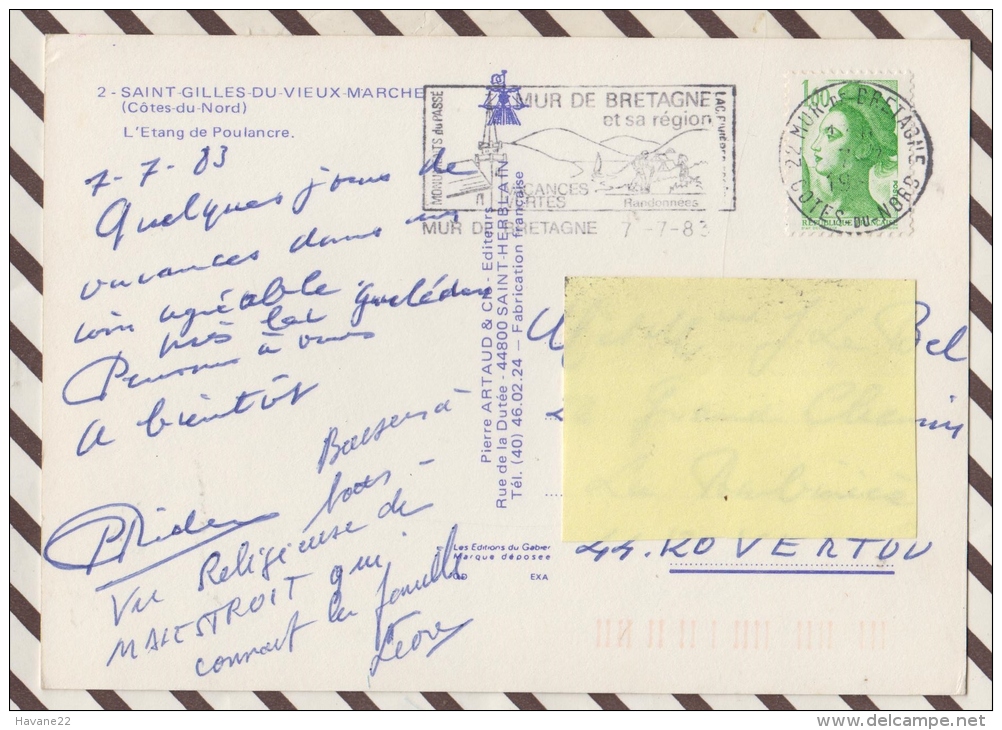 2 - SAINT-GILLES-DU-VIEUX-MARCHE
(Côtes-du-Nord)
L'Etang de Poulancre.
7-7-83
Quelques jours de
vacances dans un
coin agréable
près lac Guélédan
Pensons à vous
A bientôt
Baisers à
tous -
Vu Religieuse de
MALESTROIT qui
connait la famille
MONUMENTS du PASSÉ
MUR DE BRETAGNE
et sa région
VACANCES
VERTES
Randonnées
MUR DE BRETAGNE 7-7-83
1,00
22 MUR DE BRETAGNE
COTES DU NORD
Pierre ARTAUD & Cie - Editeurs
Rue de la Dutée - 44800 SAINT-HERBLAIN
Tél. (40) 46.02.24 — Fabrication française
Le Bel
Grand Chemin
La
44.120 VERTOU
Les Editions du Gabier
Marque déposée
EXA
Havane22
delcampe.net